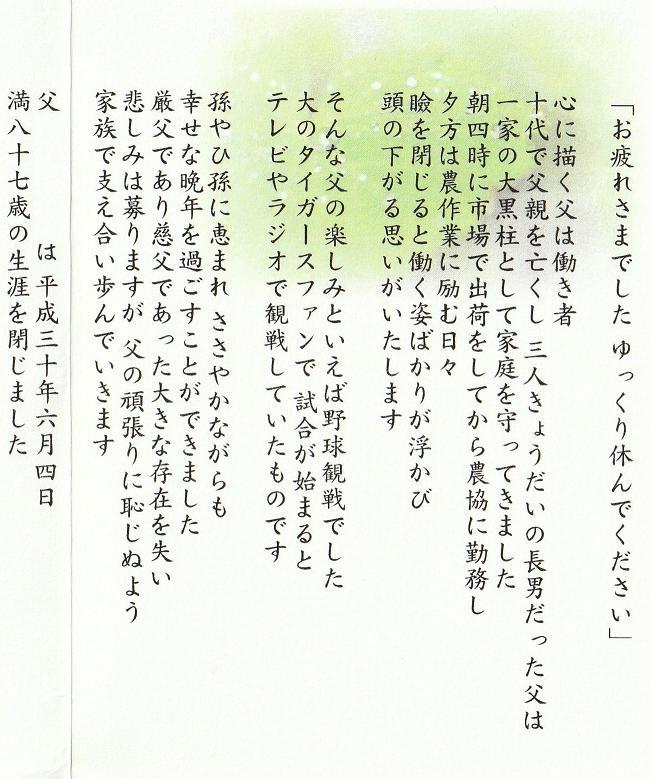 「お疲れさまでした ゆっくり休んでください」
心に描く父は働き者
十代で父親を亡くし 三人きょうだいの長男だった父は
一家の大黒柱として家庭を守ってきました
朝四時に市場で出荷をしてから農協に勤務し
夕方は農作業に励む日々
瞼を閉じると働く姿ばかりが浮かび
頭の下がる思いがいたします
そんな父の楽しみといえば野球観戦でした
大のタイガースファンで 試合が始まると
テレビやラジオで観戦していたものです
孫やひ孫に恵まれ ささやかながらも
幸せな晩年を過ごすことができました
厳父であり慈父であった大きな存在を失い
悲しみは募りますが 父の頑張りに恥じぬよう
家族で支え合い歩んでいきます
父 は 平成三十年六月四日
満八十七歳の生涯を閉じました